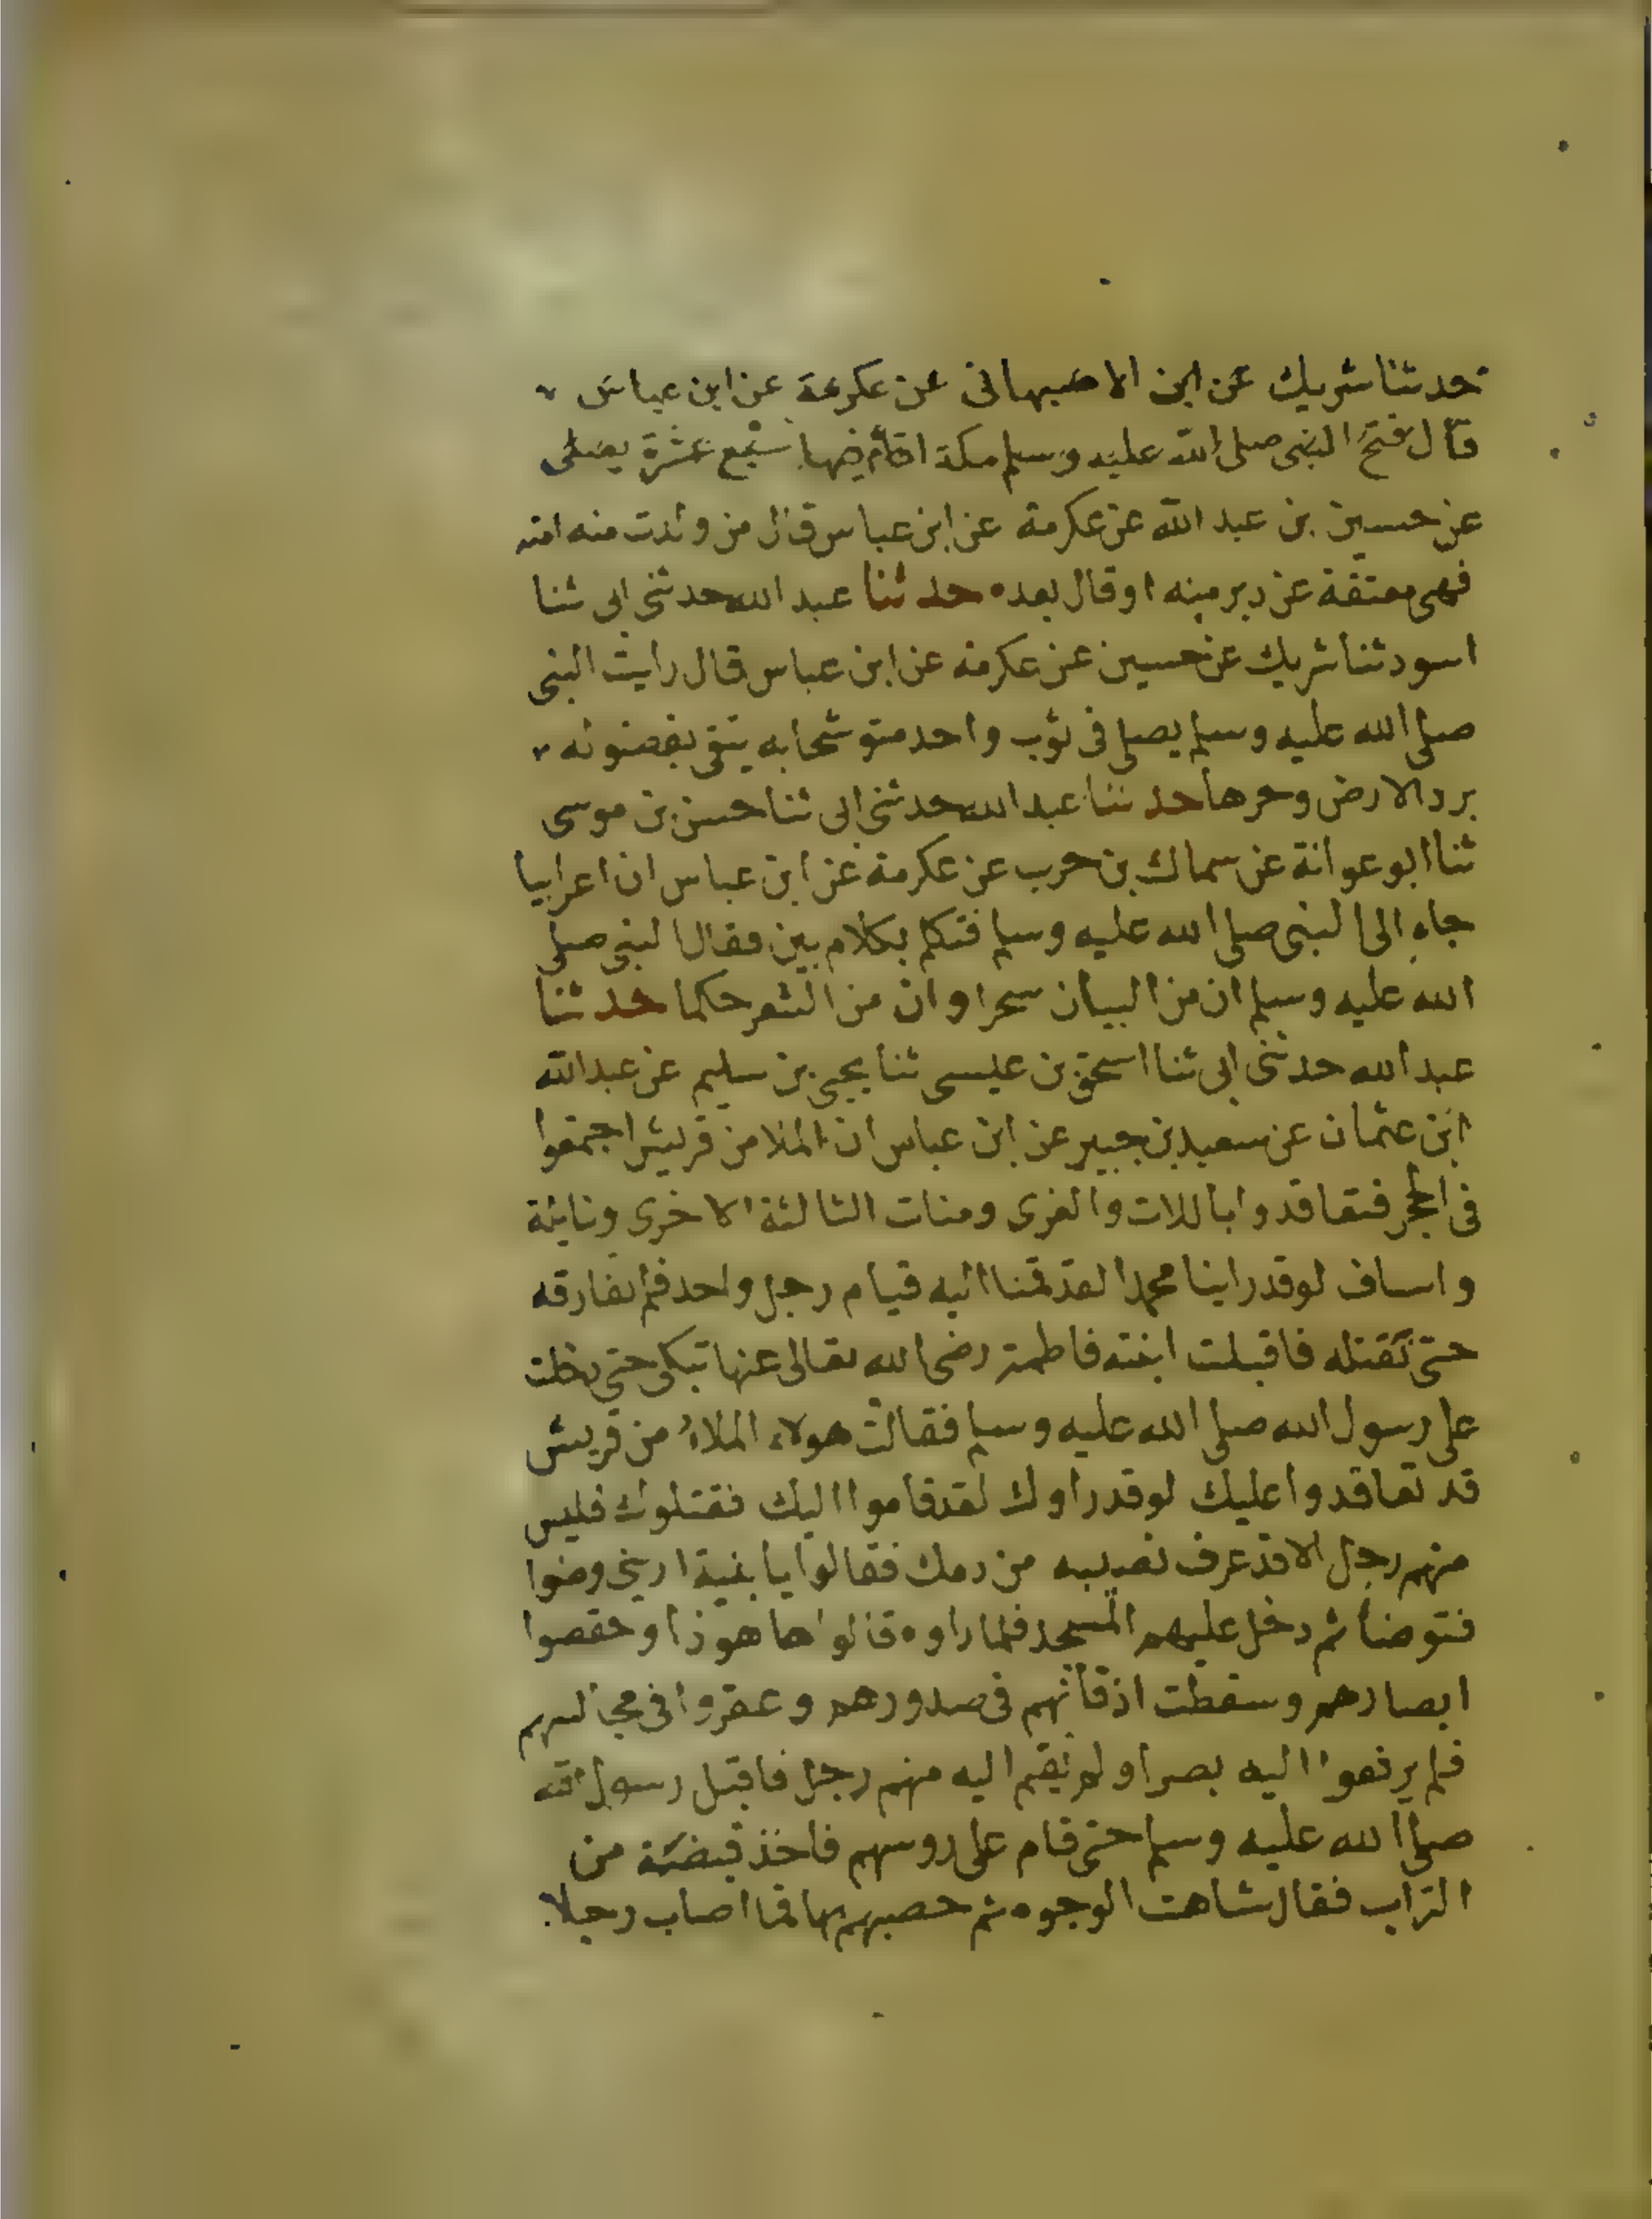 حدثنا شريك عن ابن الاصبهانى عن عكرمة عن ابن عباس
قال فتح النبى صلى الله عليه وسلم مكة اقام فيها سبع عشرة يصلى
عن حسين بن عبد الله عن عكرمة عن ابن عباس قال من ولدت منه امته
فهى معتقة عن دبر منه او قال بعده حدثنا عبد الله حدثنى ابى ثنا
اسود ثنا شريك عن حسين عن عكرمه عن ابن عباس قال رايت النبى
صلى الله عليه وسلم يصلى فى ثوب واحد متوشحا به يتقى بفضوله
برد الارض وحرها حدثنا عبد الله حدثنى ابى ثنا حسن بن موسى
ثنا ابو عوانة عن سماك بن حرب عن عكرمة عن ابن عباس ان اعرابيا
جاء الى النبى صلى الله عليه وسلم فتكلم بكلام بين فقال النبى صلى
الله عليه وسلم ان من البيان سحرا وان من الشعر حكما حدثنا
عبد الله حدثنى ابى ثنا اسحق بن عيسى ثنا يحيى بن سليم عن عبد الله
ابن عثمان عن سعيد بن جبير عن ابن عباس ان الملا من قريش اجتمعوا
فى الحجر فتعاقدوا باللات والعزى ومنات الثالثة الاخرى ونايئة
واساف لو قد راينا محمدا لقد قمنا اليه قيام رجل واحد فلم نفارقه
حتى نقتله فاقبلت ابنته فاطمة رضى الله تعالى عنها تبكى حتى دخلت
على رسول الله صلى الله عليه وسلم فقالت هولاء الملاء من قريش
قد تعاقدوا عليك لو قد راوك لقد قاموا اليك فقتلوك فليس
منهم رجل الا قد عرف نصيبه من دمك فقالوا يا بنية ارينى وضوا
فتوضأ ثم دخل عليهم المسجد فلما راوه قالوا ها هو ذا وخفضوا
ابصارهم وسقطت اذقانهم فى صدورهم وعقروا فى مجالسهم
فلم يرفعوا اليه بصرا ولم يقم اليه منهم رجل فاقبل رسول الله
صلى الله عليه وسلم حتى قام على روسهم فاخذ قبضة من
التراب فقال شاهت الوجوه ثم حصبهم بها فما اصاب رجلا